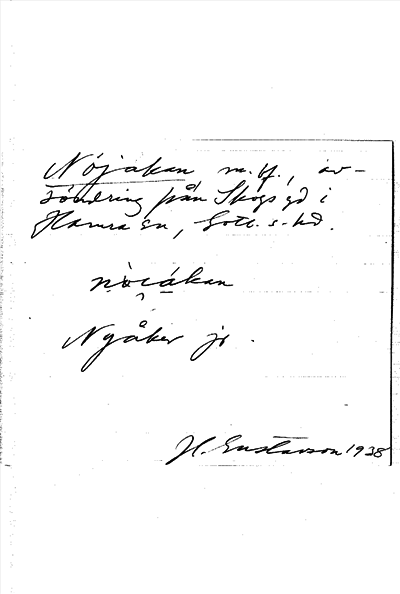 Nöjakan, m. bf., av-
söndring från Skogs gd i
Hamra sn, Gotl. s. hd.
nòi̯ákan
Nyåker jr.
H. Gustavson 1938